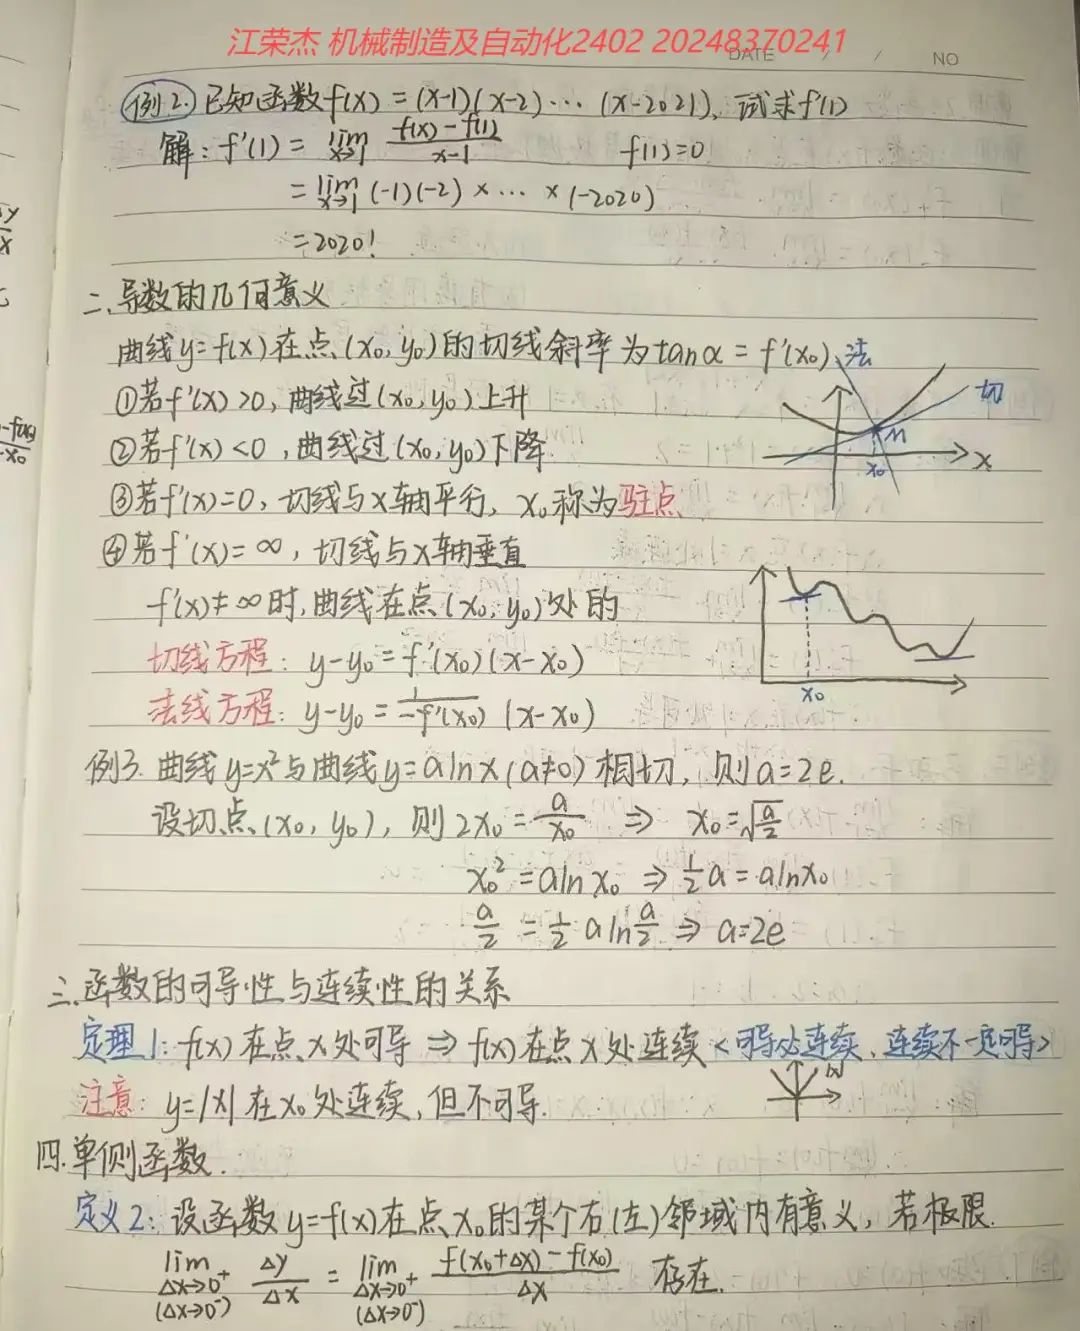 江荣杰 机械制造及自动化2402 20248370241
DATE / / NO
例2. 已知函数f(x)=(x-1)(x-2)…(x-2021), 试求f'(1)
解: f'(1) = lim x→1 f(x)-f(1) / x-1 f(1)=0
= lim x→1 (-1)(-2)×…×(-2020)
=2020!
二、导数的几何意义
曲线y=f(x)在点(x₀,y₀)的切线斜率为tanα=f'(x₀)
法
切
①若f'(x)>0, 曲线过(x₀,y₀)上升
M
②若f'(x)<0, 曲线过(x₀,y₀)下降
x₀ x
③若f'(x)=0, 切线与x轴平行, x₀称为驻点
④若f'(x)=∞, 切线与x轴垂直
f'(x)≠∞时, 曲线在点(x₀,y₀)处的
切线方程: y-y₀=f'(x₀)(x-x₀)
x₀
法线方程: y-y₀= 1/-f'(x₀) (x-x₀)
例3. 曲线y=x²与曲线y=alnx(a≠0)相切, 则a=2e.
设切点(x₀,y₀), 则2x₀=a/x₀ ⇒ x₀=√(a/2)
x₀²=alnx₀ ⇒ ½a=alnx₀
a/2=½aln a/2 ⇒ a=2e
三、函数的可导性与连续性的关系
定理1: f(x)在点x处可导⇒f(x)在点x处连续<可导必连续、连续不一定可导>
注意: y=|x|在x₀处连续, 但不可导.
四.单侧函数.
定义2: 设函数y=f(x)在点x₀的某个右(左)邻域内有意义, 若极限
lim Δx→0⁺ (Δx→0⁻) Δy/Δx = lim Δx→0⁺ (Δx→0⁻) f(x₀+Δx)-f(x₀) / Δx 存在.